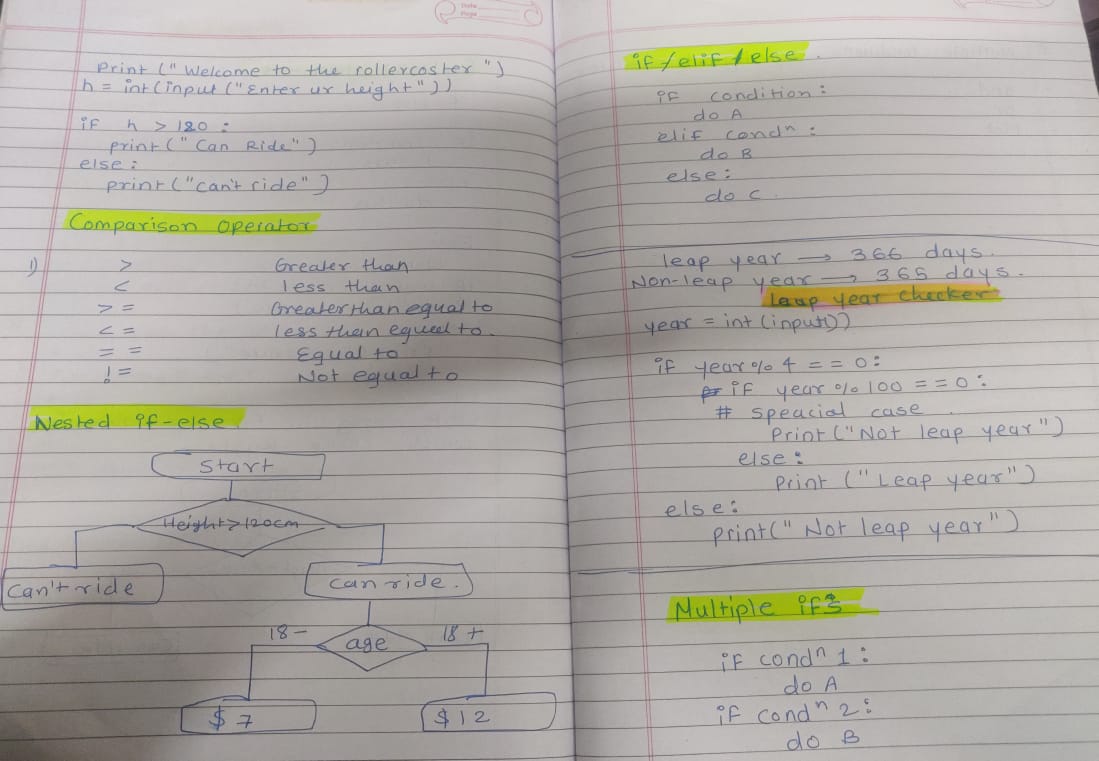 Print (" Welcome to the rollercoster ")
h = int (input ("Enter ur height"))
if h > 120 :
print (" Can Ride")
else :
print ("can't ride")
Comparison Operator
1) > Greater than
< less than
> = Greater than equal to
< = less than equal to.
= = Equal to
! = Not equal to
Nested if-else
Start
Height > 120cm
Can't ride
Can ride.
18-
age
18 +
$ 7
$ 12
if / elif / else .
if condition :
do A
elif condn :
do B
else :
do C
leap year → 366 days.
Non-leap year → 365 days.
Leap year checker
year = int (input())
if year % 4 = = 0 :
if year % 100 = = 0 :
# speacial case
Print ("Not leap year")
else :
Print ("Leap year")
else :
print(" Not leap year")
Multiple ifs
if condn 1 :
do A
if condn 2 :
do B